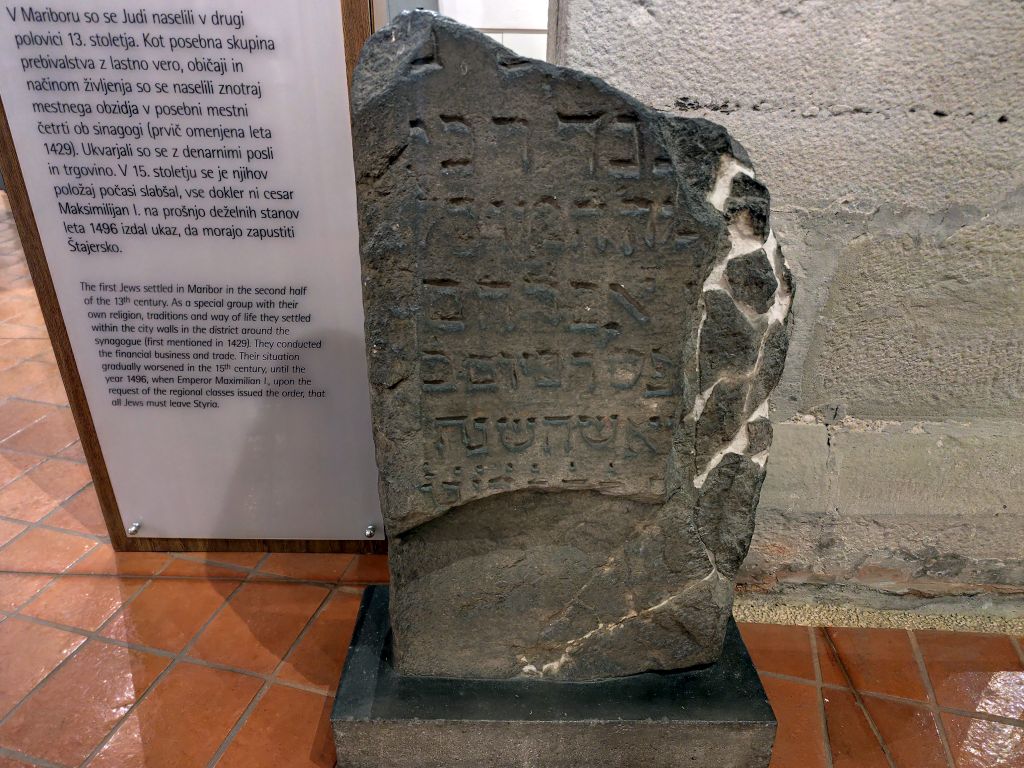 V Mariboru so se Judi naselili v drugi
polovici 13. stoletja. Kot posebna skupina
prebivalstva z lastno vero, običaji in
načinom življenja so se naselili znotraj
mestnega obzidja v posebni mestni
četrti ob sinagogi (prvič omenjena leta
1429). Ukvarjali so se z denarnimi posli
in trgovino. V 15. stoletju se je njihov
položaj počasi slabšal, vse dokler ni cesar
Maksimilijan I. na prošnjo deželnih stanov
leta 1496 izdal ukaz, da morajo zapustiti
Štajersko.
The first Jews settled in Maribor in the second half
of the 13th century. As a special group with their
own religion, traditions and way of life they settled
within the city walls in the district around the
synagogue (first mentioned in 1429). They conducted
the financial business and trade. Their situation
gradually worsened in the 15th century, until the
year 1496, when Emperor Maximilian I., upon the
request of the regional classes issued the order, that
all Jews must leave Styria.
נכד רבי
אברהם
ביום ב
השנה